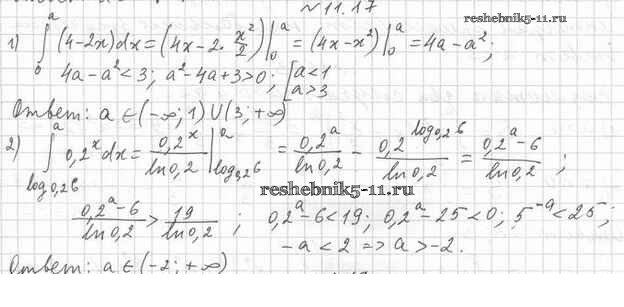 №11.17
reshebnik5-11.ru
1) ∫₀ᵃ (4-2x)dx = (4x-2·x²/2)|₀ᵃ = (4x-x²)|₀ᵃ = 4a-a²;
4a-a²<3; a²-4a+3>0; [a<1 a>3
Ответ: a∈(-∞; 1)∪(3; +∞)
2) ∫_{log₀,₂6}^{a} 0,2ˣdx = 0,2ˣ/ln0,2 |_{log₀,₂6}^{a} = 0,2ᵃ/ln0,2 - 0,2^{log₀,₂6}/ln0,2 = (0,2ᵃ-6)/ln0,2 ;
reshebnik5-11.ru
(0,2ᵃ-6)/ln0,2 > 19/ln0,2 ; 0,2ᵃ-6<19; 0,2ᵃ-25<0; 5⁻ᵃ<25;
-a<2 => a>-2.
Ответ: a∈(-2; +∞)